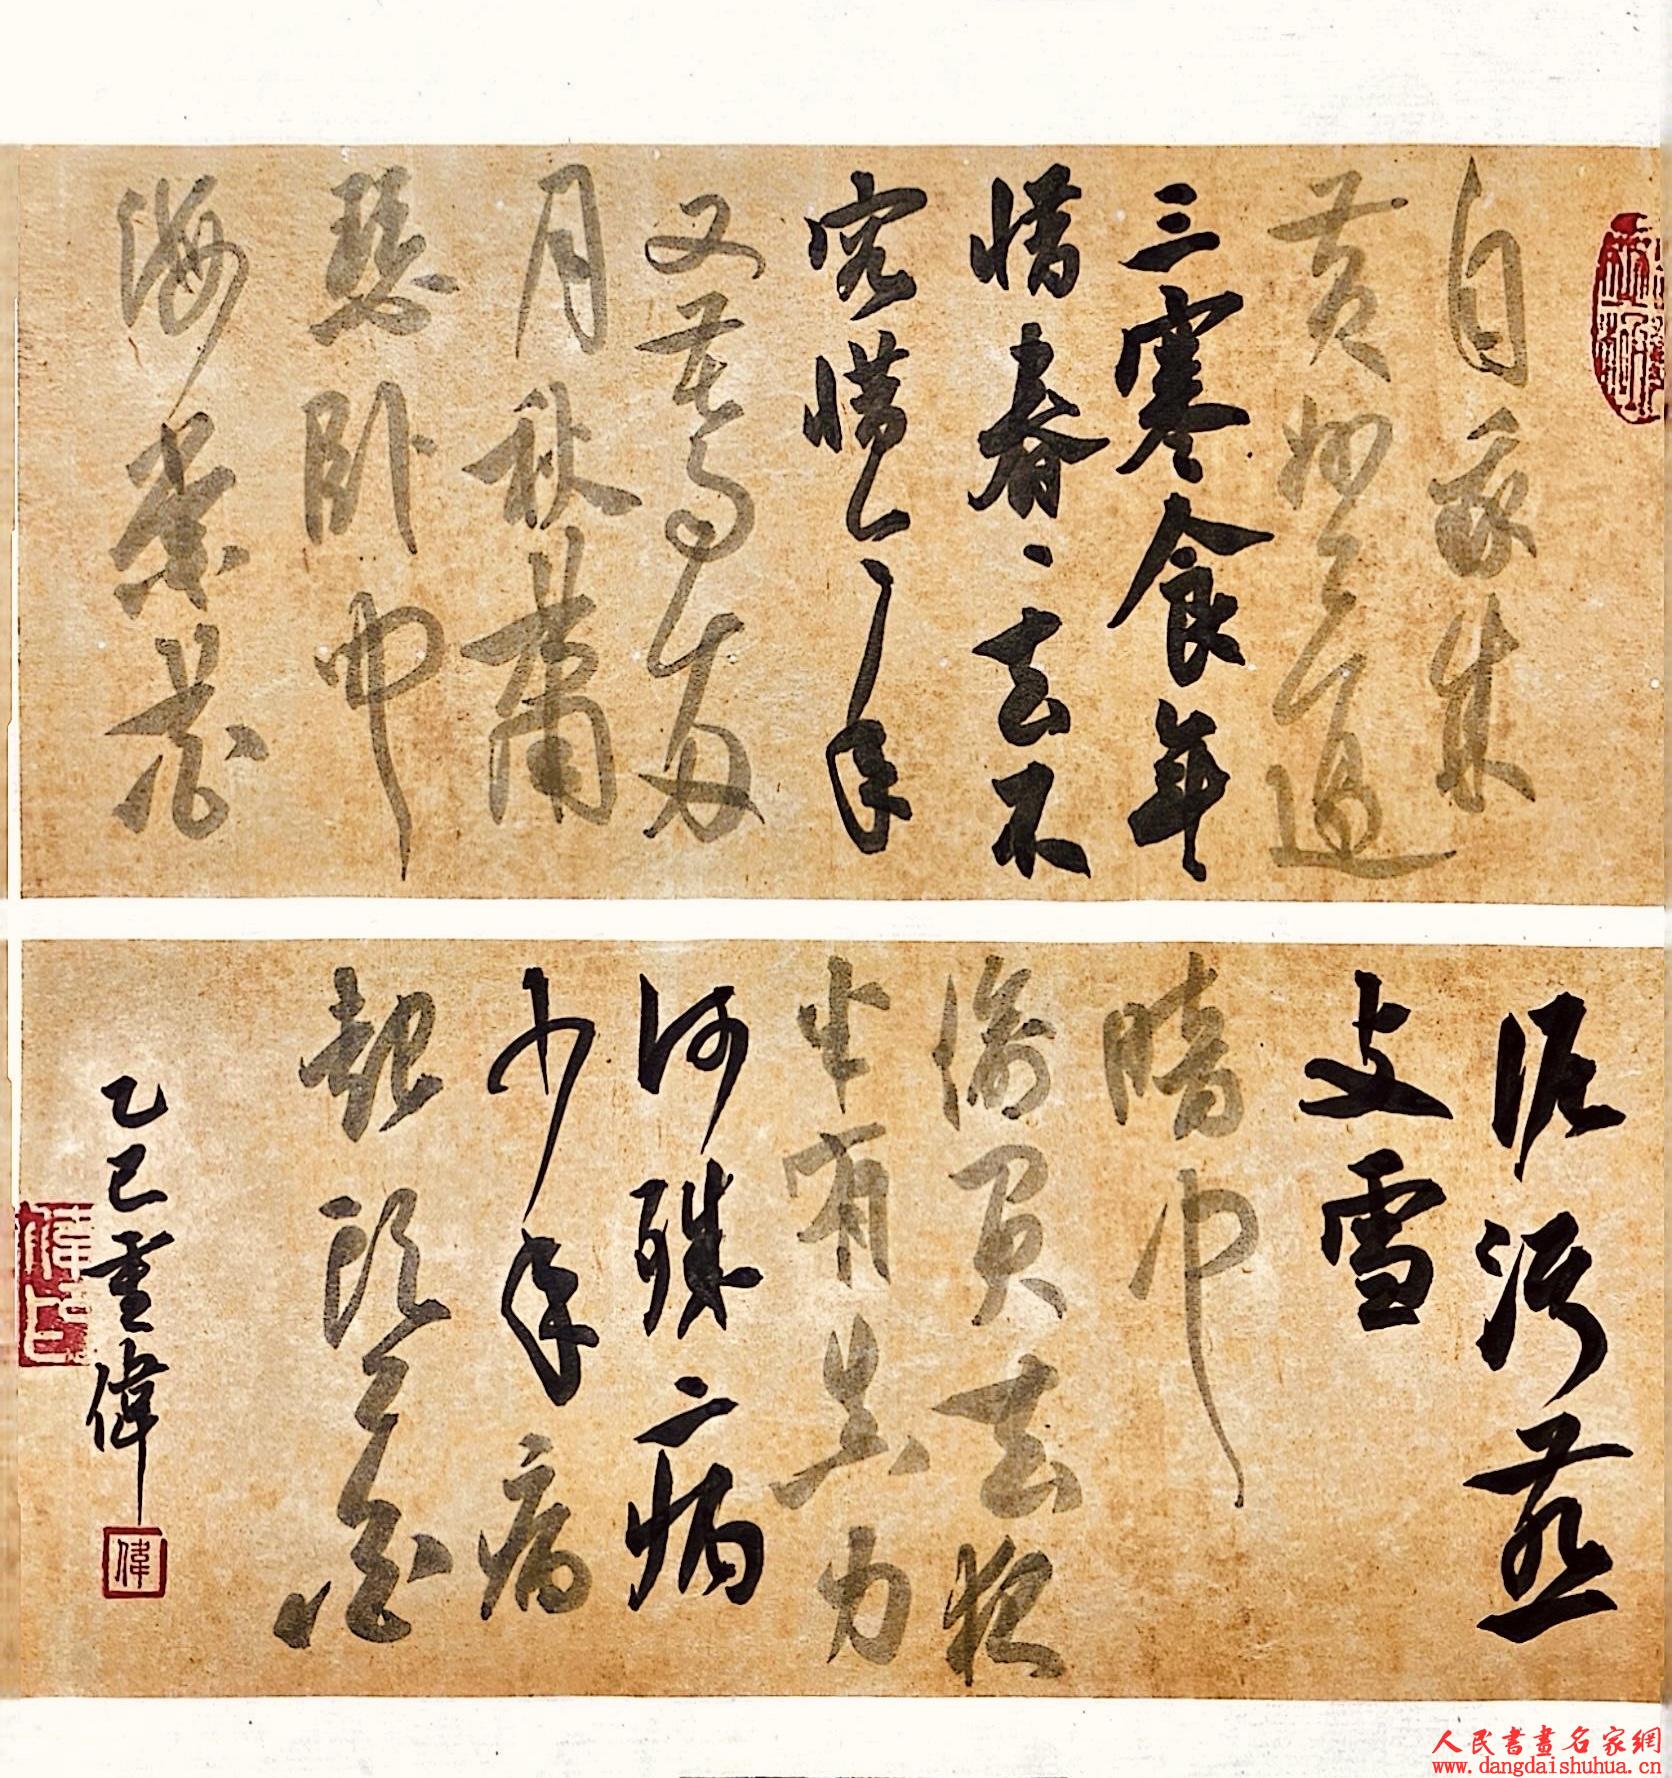 自我來
黄州已過
三寒食年
惜春、去不
容惜今年
又苦雨兩
月秋蕭
瑟卧聞
海棠花
泥污燕
支雪
暗中
偷負去夜
半有真力
何殊二病
少年病
起頭已白
乙巳雲偉
偉印
偉
人民書畫名家網
www.dangdaishuhua.cn